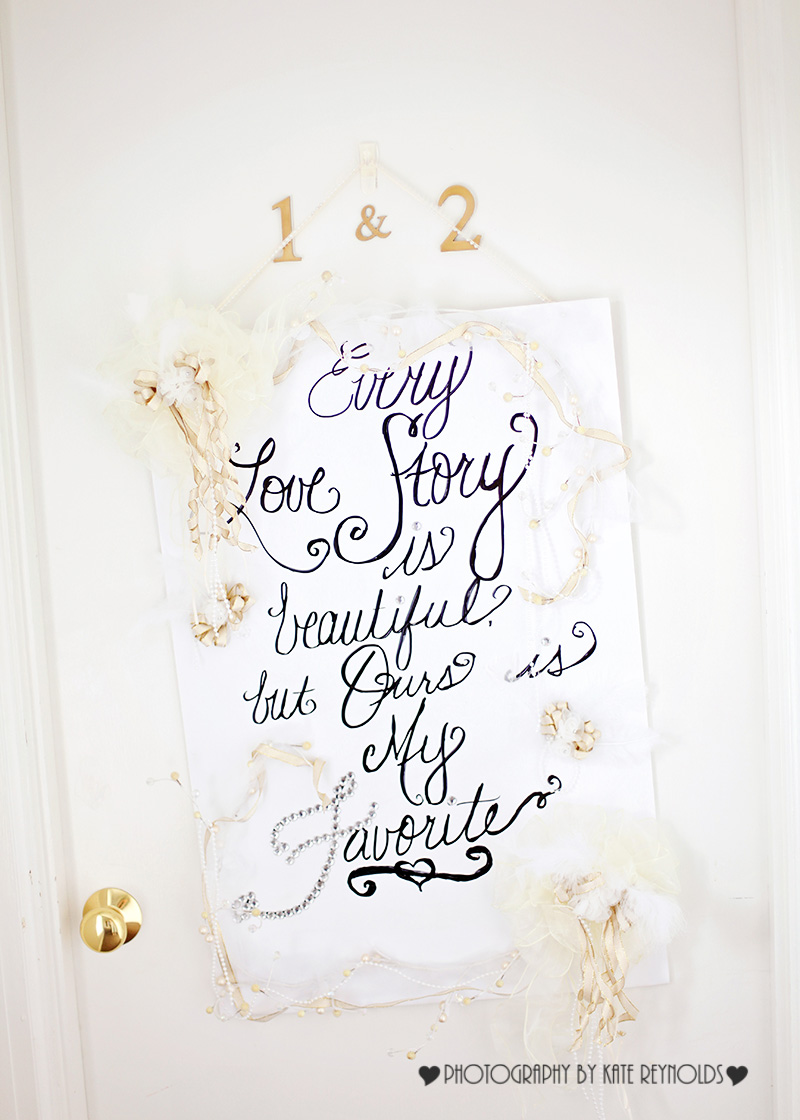 1 & 2
Every
Love Story
is
beautiful,
but Ours is
My
Favorite
PHOTOGRAPHY BY KATE REYNOLDS